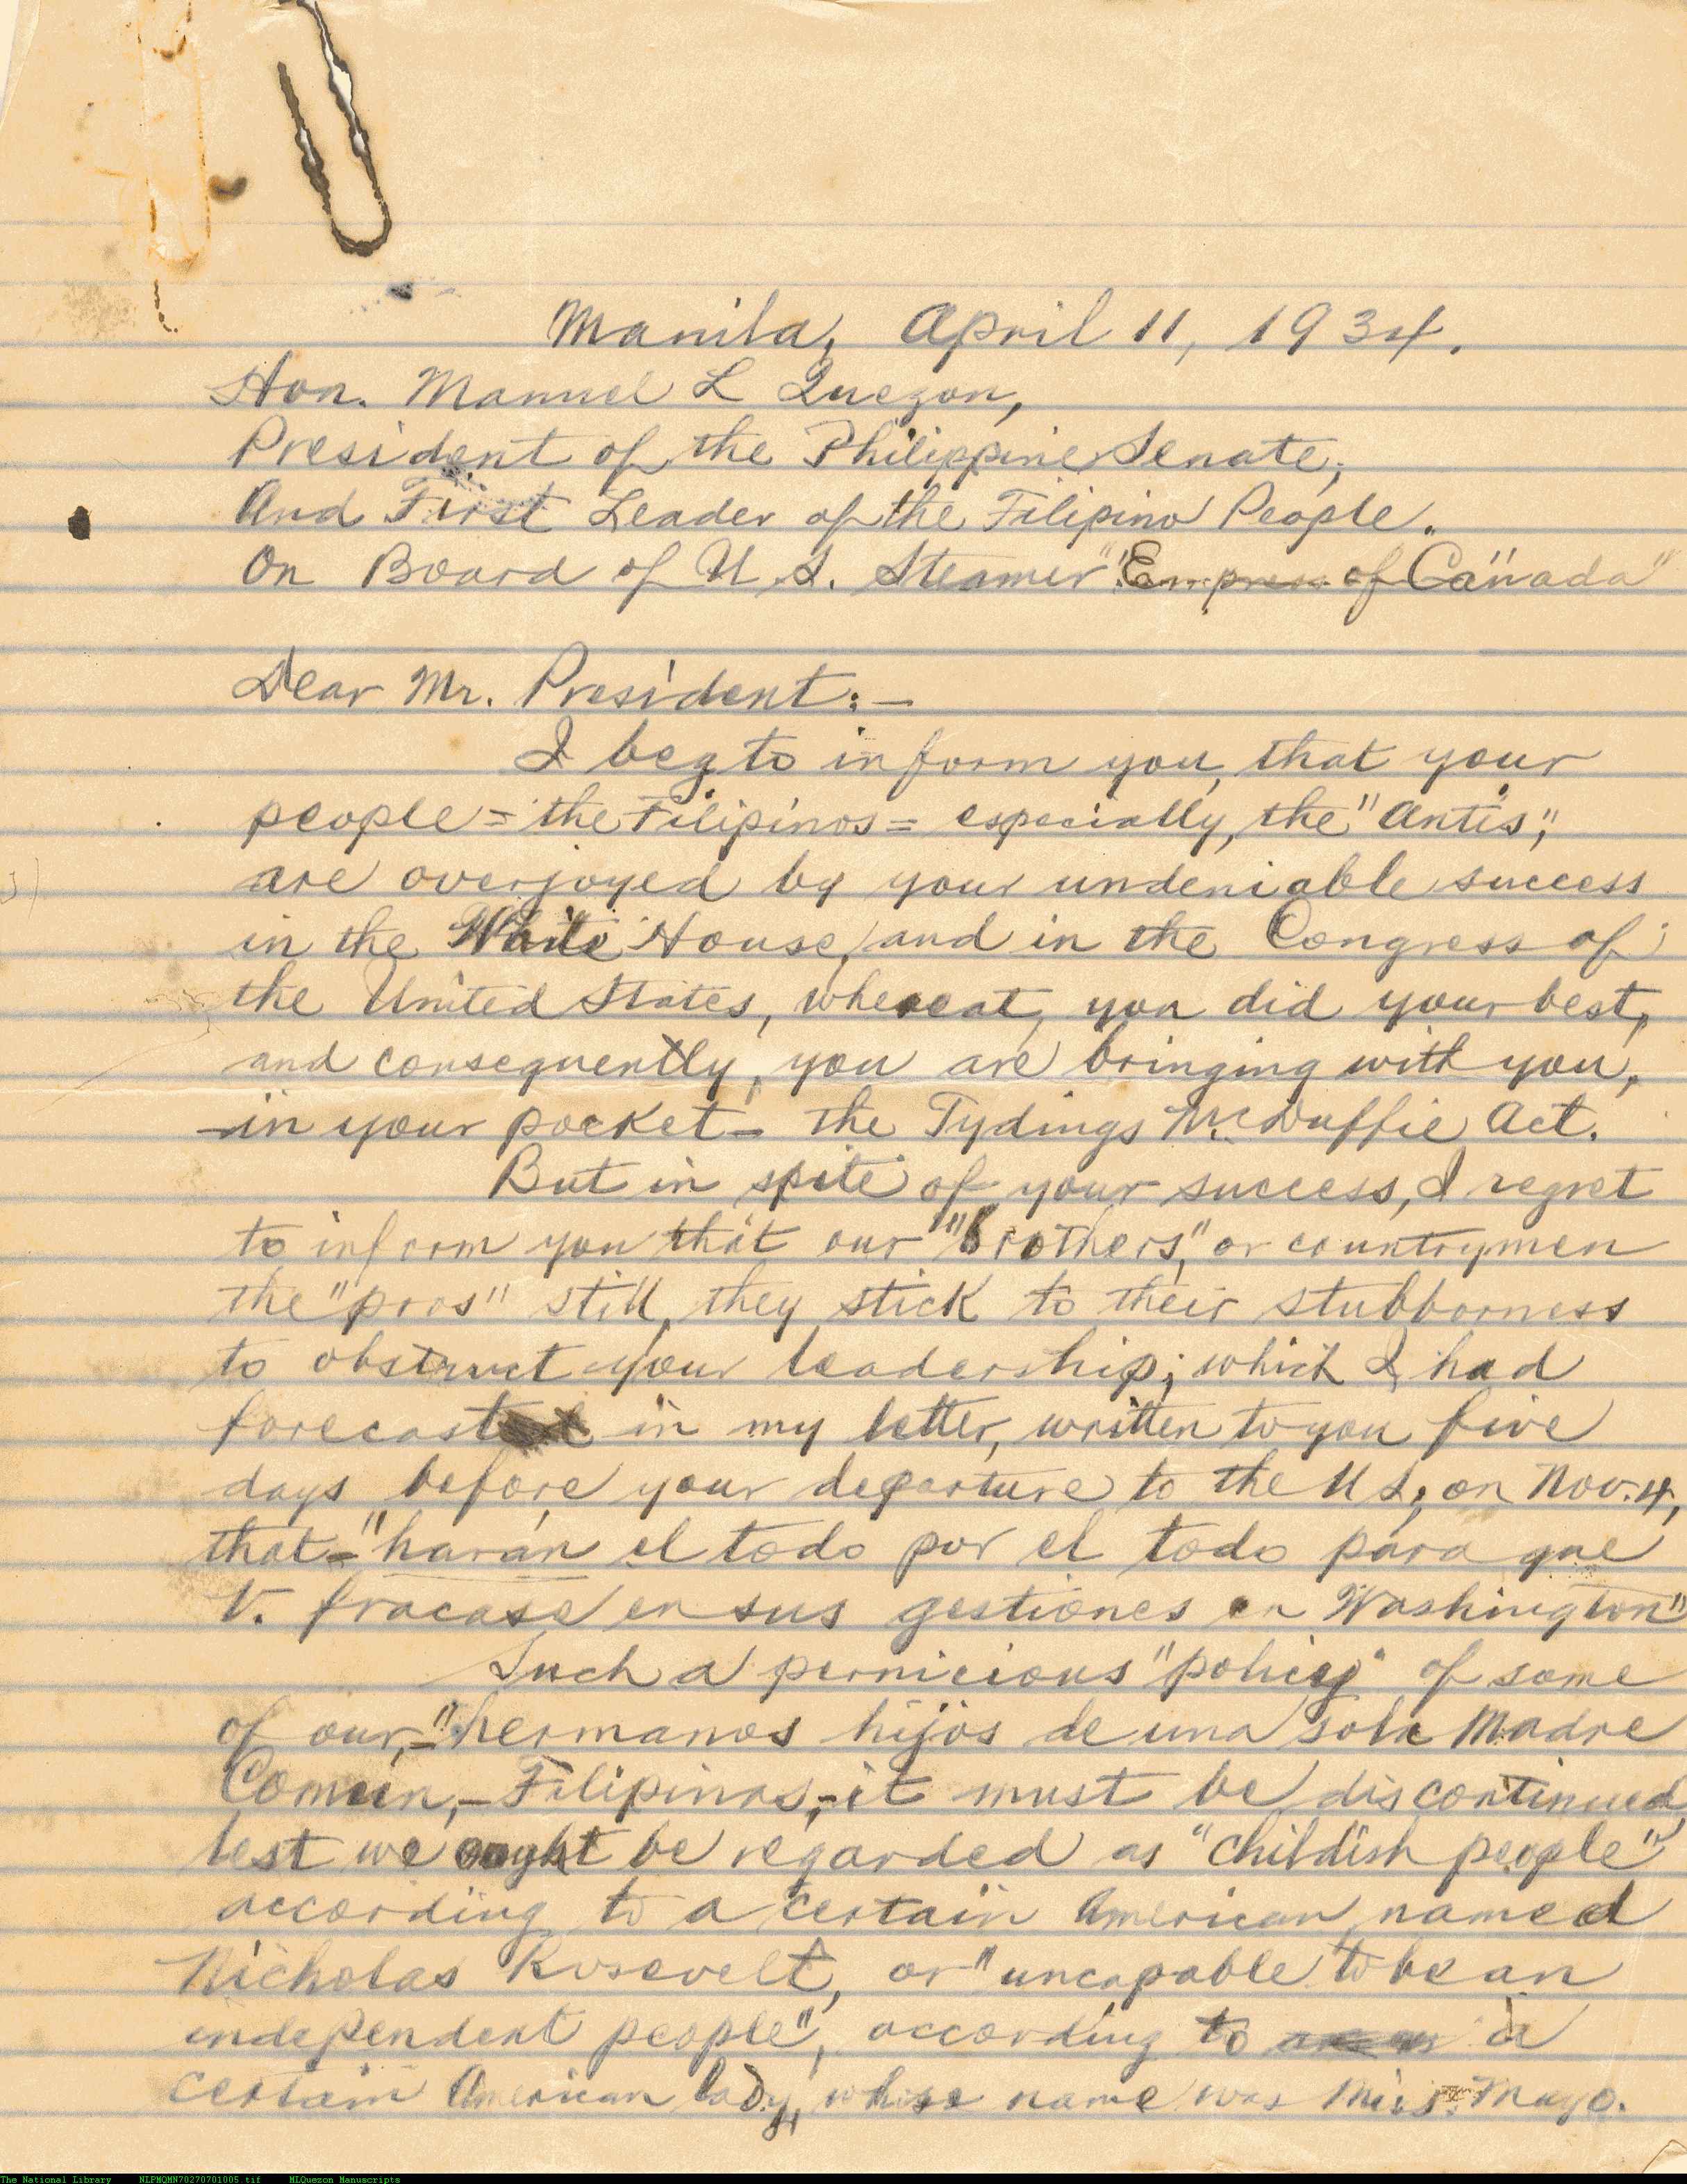 Manila, April 11, 1934.
Hon. Manuel L Quezon,
President of the Philippine Senate,
And First Leader of the Filipino People.
On Board of U.S. Steamer "Empress of Canada"
Dear Mr. President:-
I beg to inform you, that your
people = the Filipinos = especially, the "Antis",
are overjoyed by your undeniable success
in the White House, and in the Congress of
the United States, whereat, you did your best,
and consequently, you are bringing with you,
-in your pocket- the Tydings McDuffie Act.
But in spite of your success, I regret
to inform you that our "brothers," or countrymen
the "pros" still, they stick to their stubborness
to obstruct your leadership; which I had
forecast in my letter, written to you five
days before your departure to the U S, on Nov. 4,
that = "harán el todo por el todo para que
V. fracase en sus gestiones en Washington"
Such a pernicious "policy" of some
of our, - "hermanos hijos de una sola Madre
Comun, - Filipinas, - it must be discontinued,
lest we ought be regarded as "childish people"
according to a certain American named
Nicholas Rosevelt, or "uncapable to be an
independent people", according to a
certain American lady, whose name was Miss. Mayo.
The National Library NLPMQMN70270701005.tif MLQuezon Manuscripts